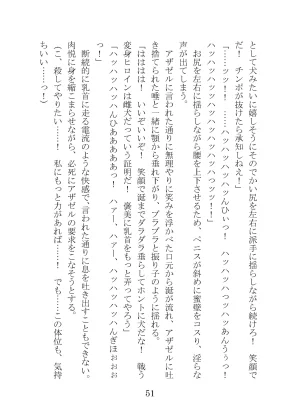 として犬みたいに嬉しそうにそのでかい尻を左右に派手に揺らしながら続けろ！　笑顔で
だ！　チンポが抜けたら承知しねえ！」
「……ッッ！！　……ハッハッハッんひぃっ！　ハッハッハつッハッあんうぅっ！
ハッハッハッハッハッハッハッッ！！」
お尻を左右に揺らしながら腰を上下させるせいで、ペニスが斜めに蜜壁をコスり、淫らな
声が出てしまう。
アザゼルに言われた通りに無理やりに笑みを浮かべた口元から涎が流れ、アザゼルに吐
き捨てられた唾と一緒に顎から垂れ下がり、ブラブラと振り子のように揺れる。
「ははははっ！　いいぞいいぞ！　笑顔で涎までダラダラ垂らしてホントに犬だな！　戦う
変身ヒロインは雌犬だっていう証明だ！　褒美に乳首をもっと弄ってやろう」
「ハッハッハッハッんひあああああっ！　ハァー、ハァー、ハッハッハッんぎほぉおぉ
っ！」
断続的に乳首に走る電流のような快感で、言われた通りに息を吐き出すこともできない。
肉悦に身を縮こまらせながら、必死にアザゼルの要求をこなそうとする。
（こ、殺してやりたい……！　私にもっと力があれば……！　でも……この体位も、気持
ちいい……っ！）
51